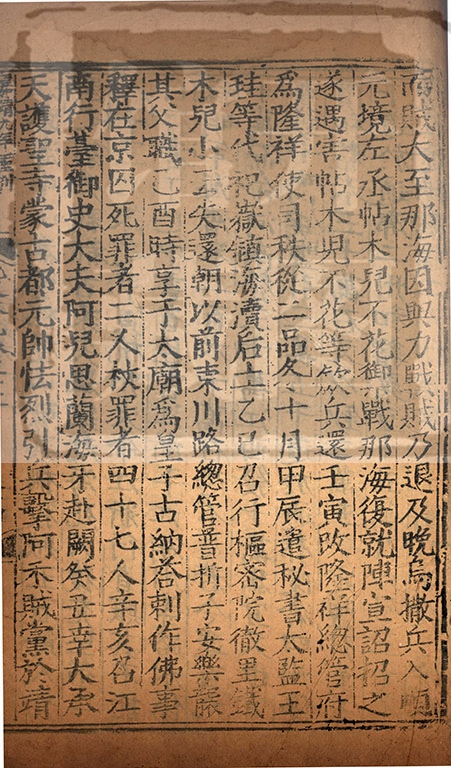 而賊大至那海因與力戰賊乃退及晚烏撒兵入順
元境左丞帖木兒不花禦戰那海復就陣宣詔招之
遂遇害帖木兒不花等斂兵還壬寅改隆祥總管府
爲隆祥使司秩從二品冬十月甲辰遣秘書太監王
珪等代祀嶽鎮海瀆后土乙巳召行樞密院徹里鐵
木兒小云失還朝以前東川路總管普折子安樂襲
其父職己酉時享于太廟爲皇子古納荅剌作佛事
釋在京囚死罪者二人杖罪者四十七人辛亥召江
南行臺御史大夫阿兒思蘭海牙赴闕癸丑幸大承
天護聖寺蒙古都元帥怯烈引兵擊阿禾賊黨於靖